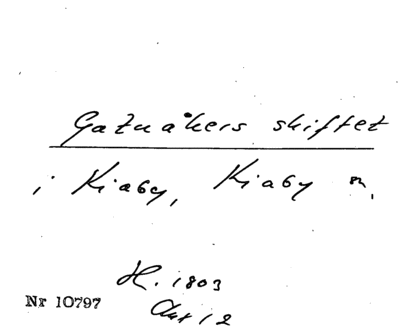 Gatuåkers skiftet
i Kiaby, Kiaby sn,
H. 1803
Akt 12
Nr 10797